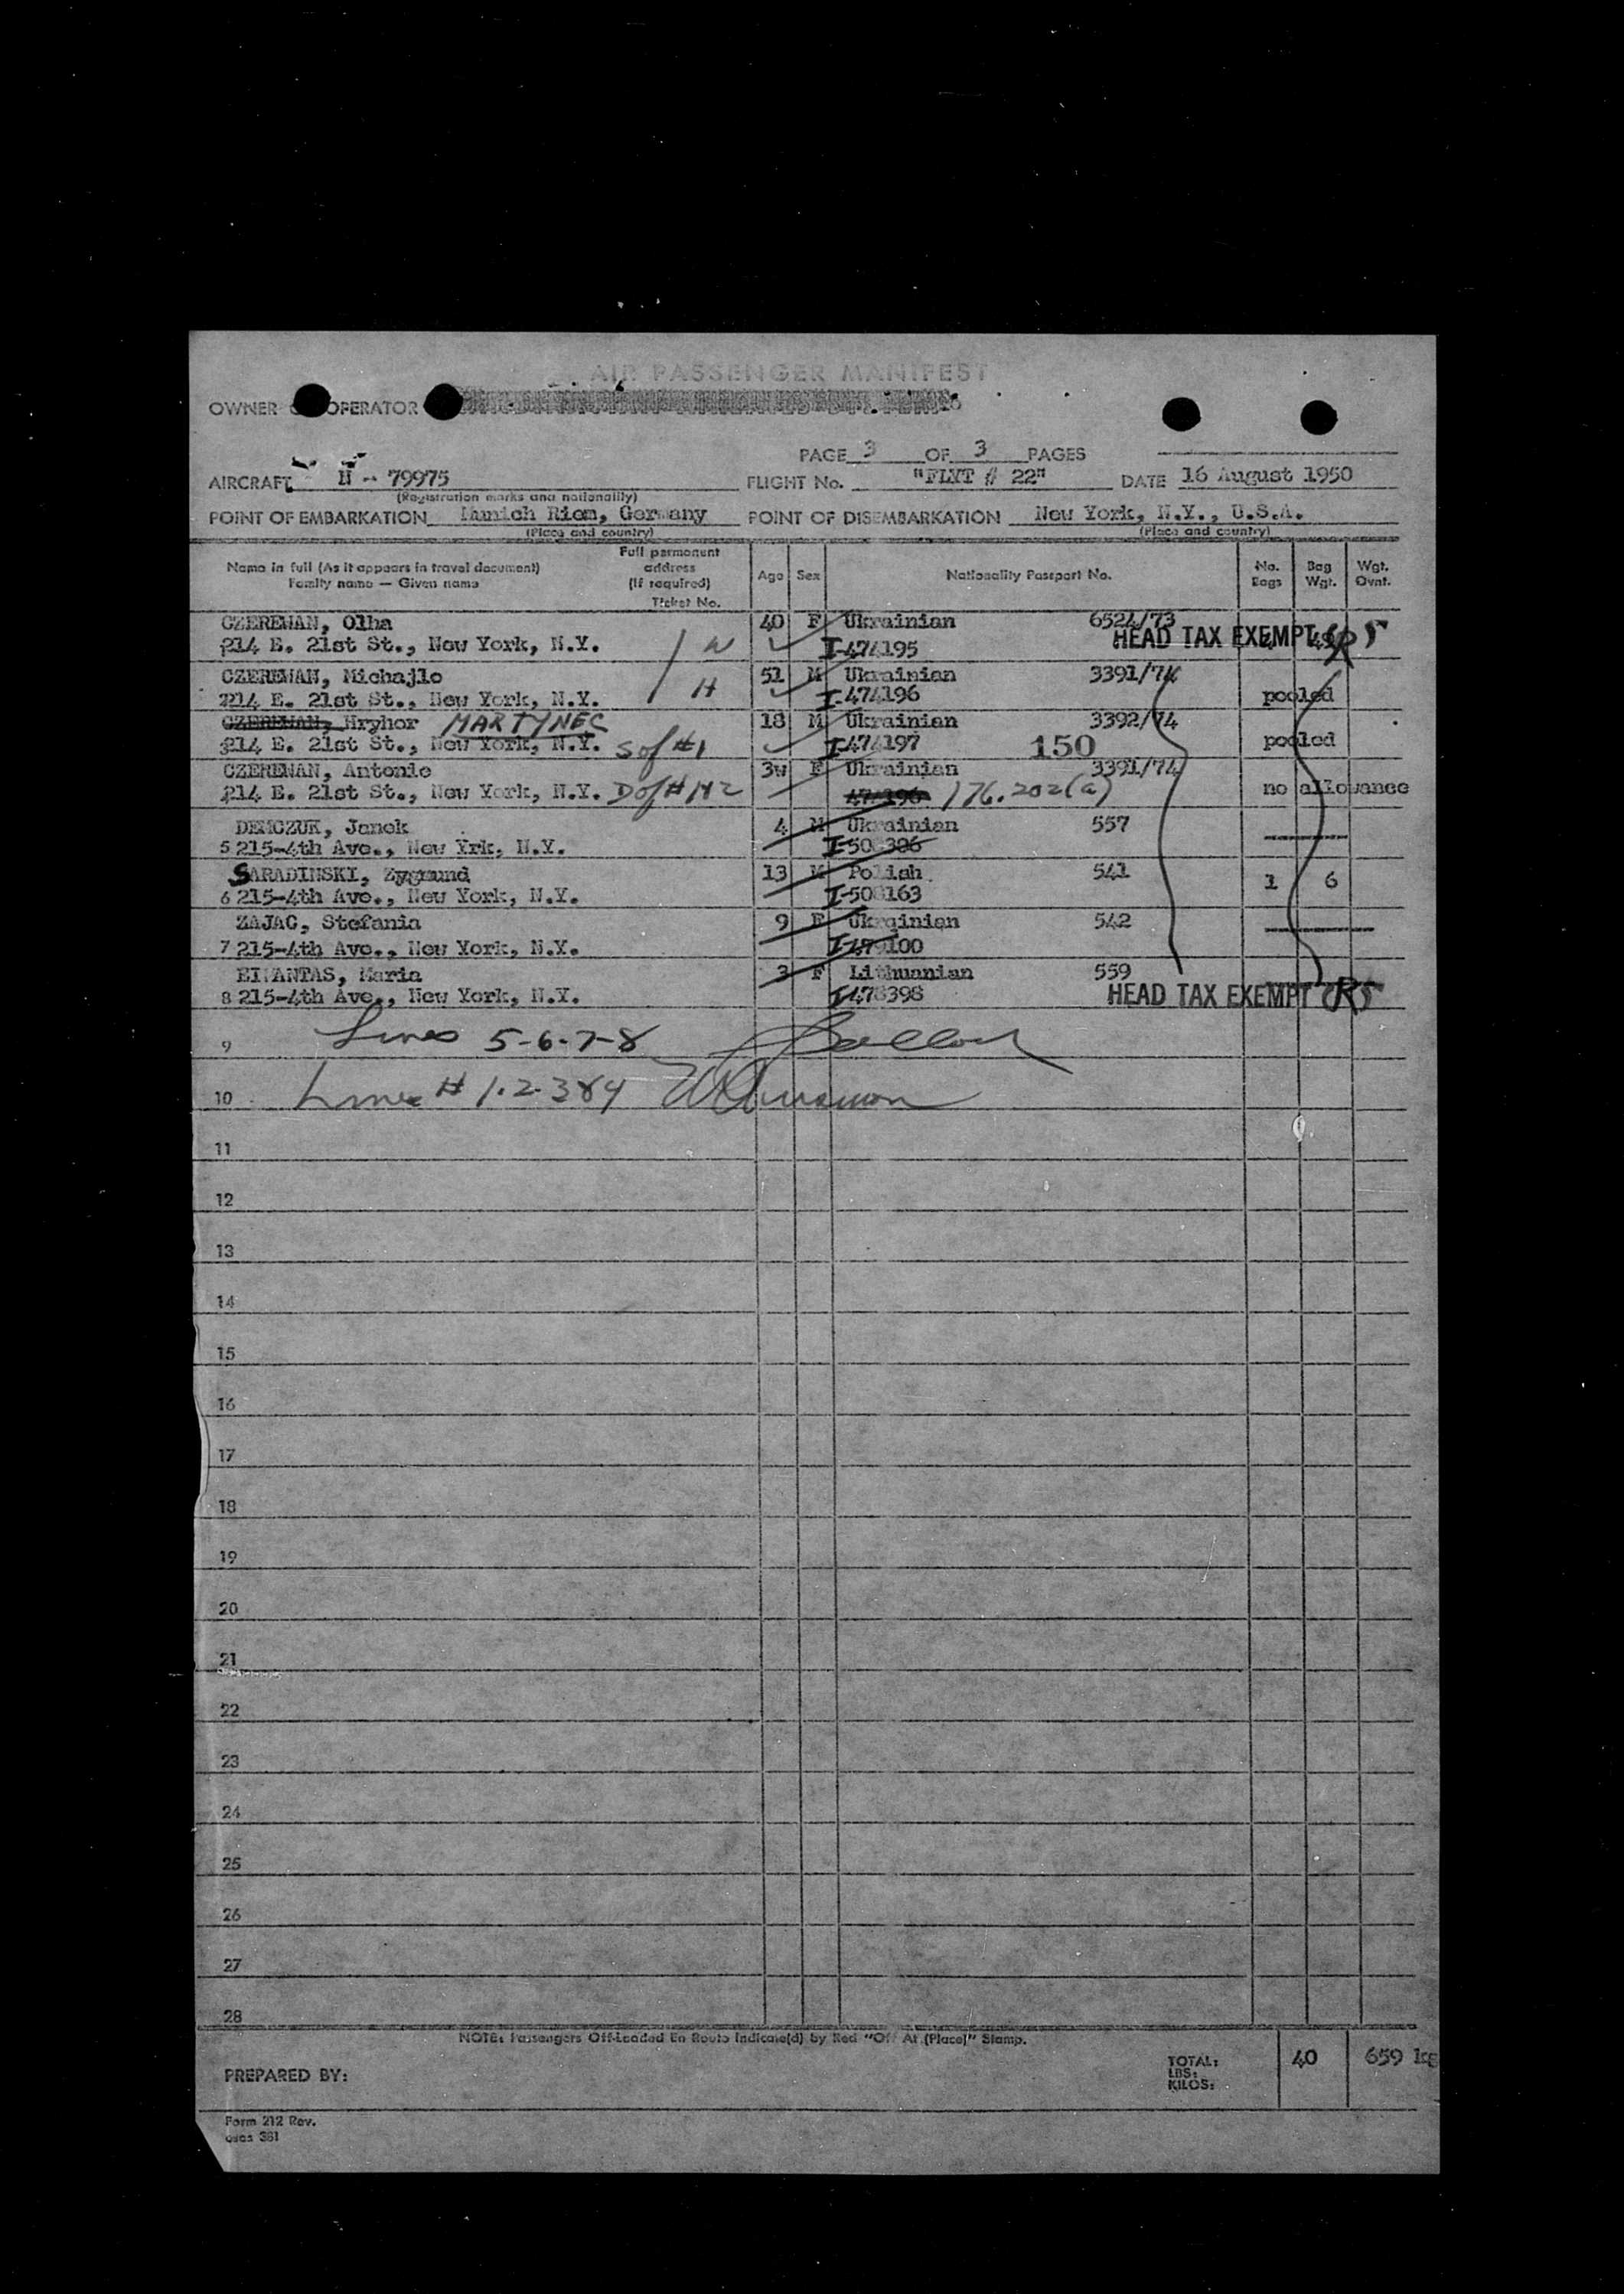 AIR PASSENGER MANIFEST
OWNER OPERATOR
PAGE 3 OF 3 PAGES
AIRCRAFT N - 79975 FLIGHT No. "FLYT # 22" DATE 16 August 1950
(Registration marks and nationality)
POINT OF EMBARKATION Munich Riem, Germany POINT OF DISEMBARKATION New York, N.Y., U.S.A.
(Place and country) (Place and country)
Name in full (As it appears in travel document) Family name — Given name Full permanent address (If required) Ticket No. Age Sex Nationality Passport No. No. Bags Bag Wgt. Wgt. Ovnt.
CZEREWAN, Olha 40 F Ukrainian 6524/73
214 E. 21st St., New York, N.Y. W I-474195 HEAD TAX EXEMPT
CZEREWAN, Michajlo 51 M Ukrainian 3391/74
214 E. 21st St., New York, N.Y. H I-474196 pooled
CZEREWAN, Hryhor MARTYNEC 18 M Ukrainian 3392/74
214 E. 21st St., New York, N.Y. S of #1 I-474197 150 pooled
CZEREWAN, Antonie 3w F Ukrainian 3391/74
214 E. 21st St., New York, N.Y. D of # 1+2 474196 176.202(a) no allowance
DEMCZUK, Janek 4 M Ukrainian 557
5 215-4th Ave., New Yrk, N.Y.
SARADINSKI, Zygmund 13 M Polish 541 1 6
6 215-4th Ave., New York, N.Y. I-508163
ZAJAC, Stefania 9 F Ukrainian 542
7 215-4th Ave., New York, N.Y.
Maria 3 F Lithuanian 559
8 215-4th Ave., New York, N.Y. I-478398 HEAD TAX EXEMPT
9 Lines 5-6-7-8
10 Lines # 1-2-3&4
11
12
13
14
15
16
17
18
19
20
21
22
23
24
25
26
27
28
NOTE: Passengers Off-Loaded En Route Indicate(d) by Red "Off At (Place)" Stamp.
PREPARED BY: TOTAL: LBS: KILOS: 40 659 kg
Form 212 Rev.